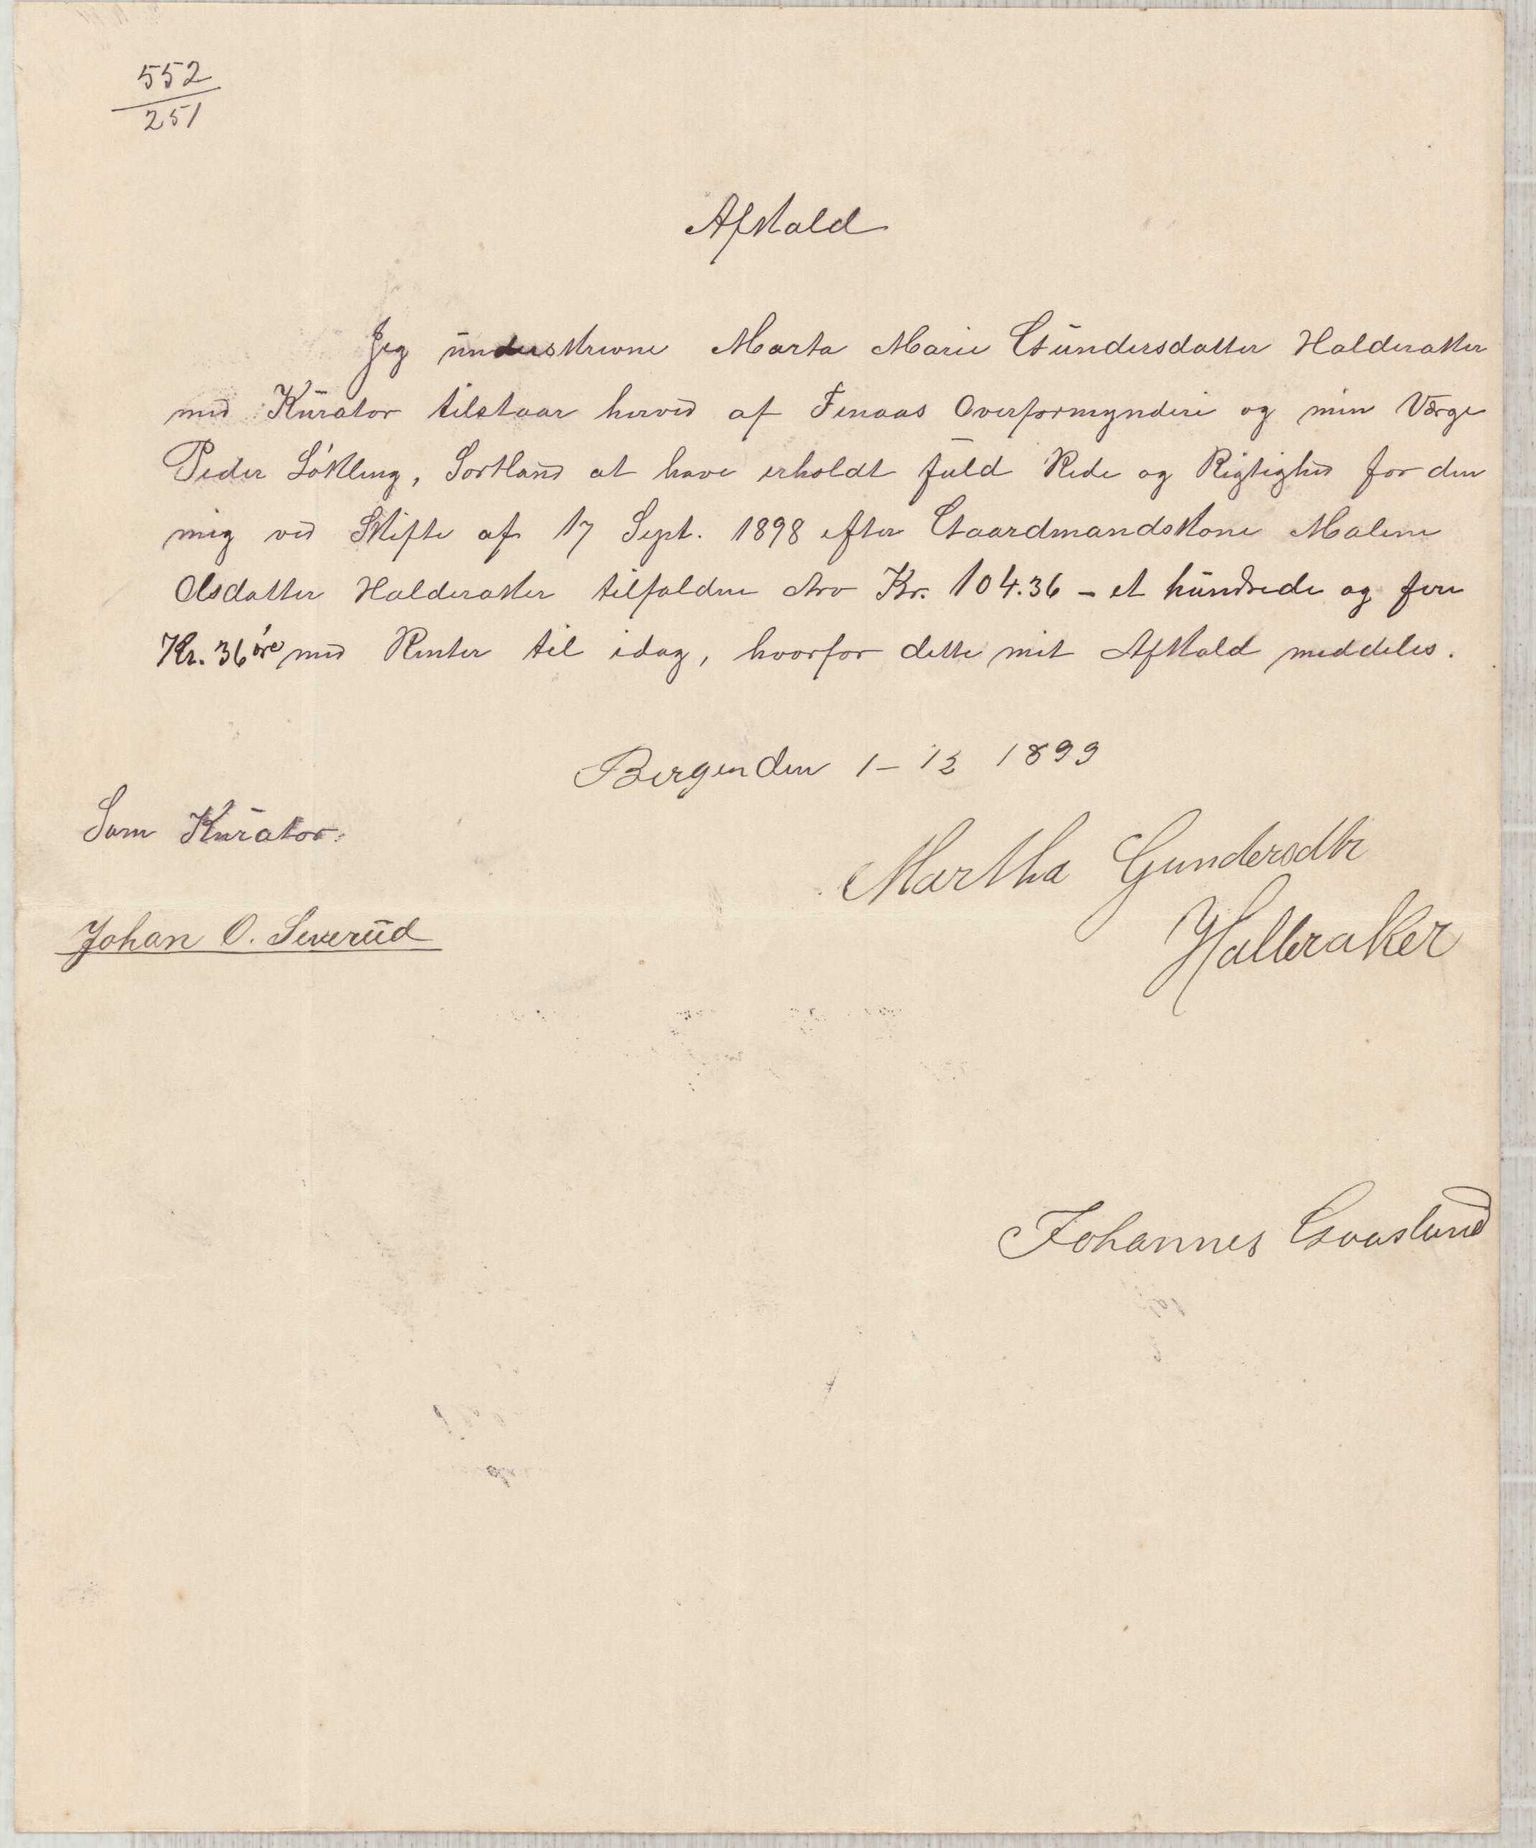 552
251
Afkald
Jeg underskrevne Marta Marie Gundersdatter Halderaker
med Kurator tilstaar herved af Fenaas Overformynderi og min Værge
Peder Løkling, Sortland at have erholdt fuld Rede og Rigtighed for den
mig ved Skifte af 17 Sept. 1898 efter Gaardmandskone Malene
Olsdatter Halderaker tilfaldne Arv Kr. 104.36 – et hundrede og fire
Kr. 36 øre med Renter til idag, hvorfor dette mit Afkald meddeles.
Bergen den 1 – 12 1899
Som Kurator:
Martha Gundersdtr
Johan O. Severud
Halleraker
Johannes Gaaslund